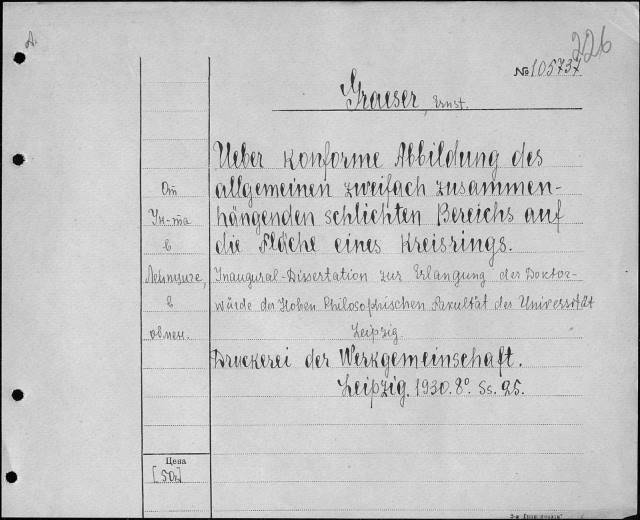 A.
226
№ 105737
Graeser, Ernst.
Ueber konforme Abbildung des
allgemeinen zweifach zusammen-
hängenden schlichten Bereichs auf
die Fläche eines Kreisrings.
Inaugural-Dissertation zur Erlangung der Doktor-
würde der Hohen Philosophischen Fakultät der Universität
Leipzig
Druckerei der Werkgemeinschaft.
Leipzig. 1930. 8° Ss. 25.
От
Ун-та
в
Лейпциге,
в
обмен.
Цена
[50к]